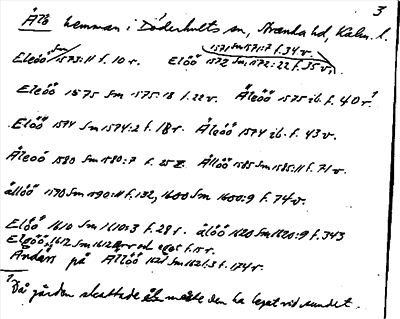 3
Ålö hemman i Döderhults sn, Stranda hd, Kalm. l.
1571 Sm 1571:7 f. 34 v.
Eleöö Sm 1573:11 f. 10 r. Elöö 1572 Sm, 1572:22 f. 35 v.
Eleöö 1575 Sm 1575:18 f. 22 r. Åleöö 1575 ib. f. 40 r.¹
Elöö 1574 Sm 1574:2 f. 18 r. Åleöö 1574 ib. f. 43 v.
Åleöö 1580 Sm 1580:7 f. 25 Ållöö 1585 Sm 1585:11 f. 71 v.
ållöö 1590 Sm 1590:11 f. 132, 1600 Sm 1600:9 f. 74 v.
Elöö 1610 Sm 1610:3 f. 28 r. ålöö 1620 Sm 1620:9 f. 343
Eleöö, 1612 Sm 1612 f. 15 r.
Anders på Allöö 1621 Sm 1621:3 f. 174 r.
1. Då gården skattade ål måste den ha legat vid sundet.